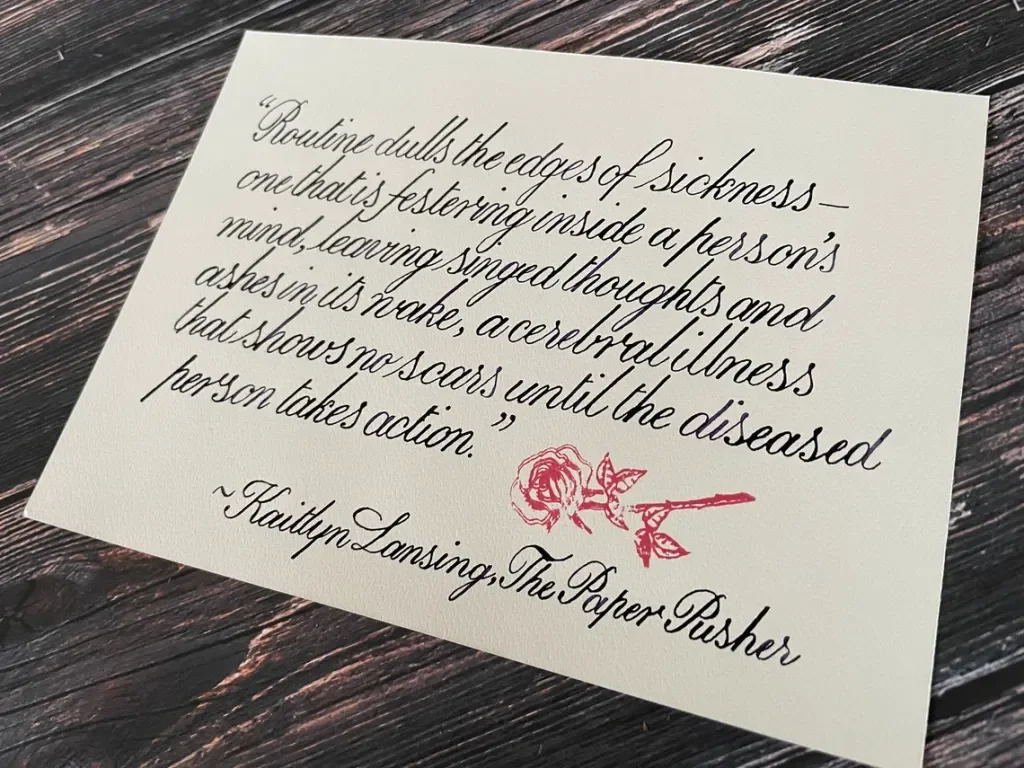 “Routine dulls the edges of sickness—
one that is festering inside a person's
mind, leaving singed thoughts and
ashes in its wake, a cerebral illness
that shows no scars until the diseased
person takes action.”
~Kaitlyn Lansing, The Paper Pusher